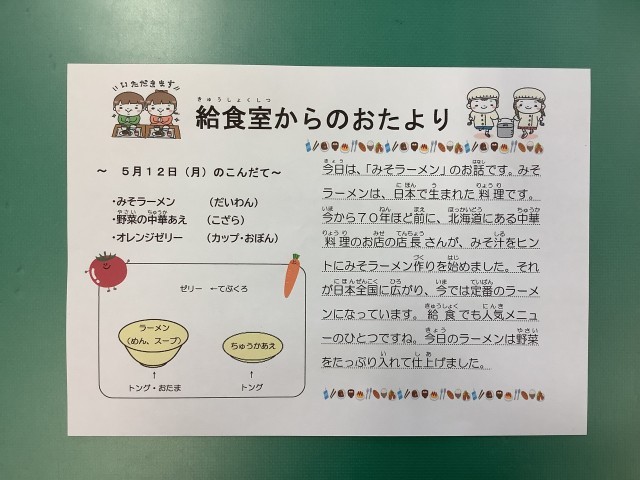 いただきます
給食室からのおたより
～　５月１２日（月）のこんだて～
・みそラーメン　（だいわん）
・野菜の中華あえ　（こざら）
・オレンジゼリー　（カップ・おぼん）
ゼリー　←てぶくろ
ラーメン
（めん、スープ）
ちゅうかあえ
↑　↑
トング・おたま　トング
今日は、「みそラーメン」のお話です。みそ
ラーメンは、日本で生まれた料理です。
今から７０年ほど前に、北海道にある中華
料理のお店の店長さんが、みそ汁をヒン
トにみそラーメン作りを始めました。それ
が日本全国に広がり、今では定番のラーメ
ンになっています。給食でも人気メニュ
ーのひとつですね。今日のラーメンは野菜
をたっぷり入れて仕上げました。